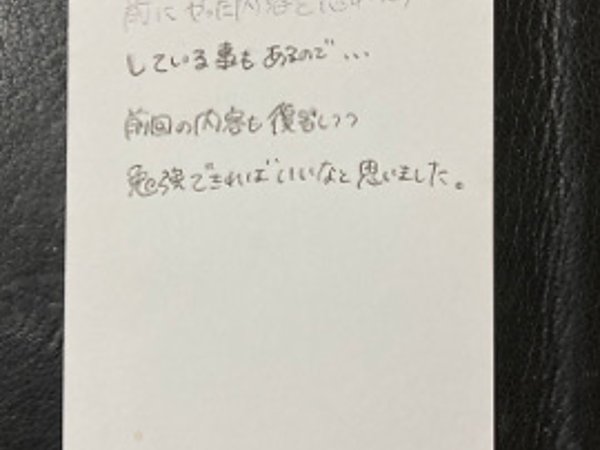 前にやった内容を忘れたり
している事もあるので...
前回の内容も復習しつつ
勉強できればいいなと思いました。